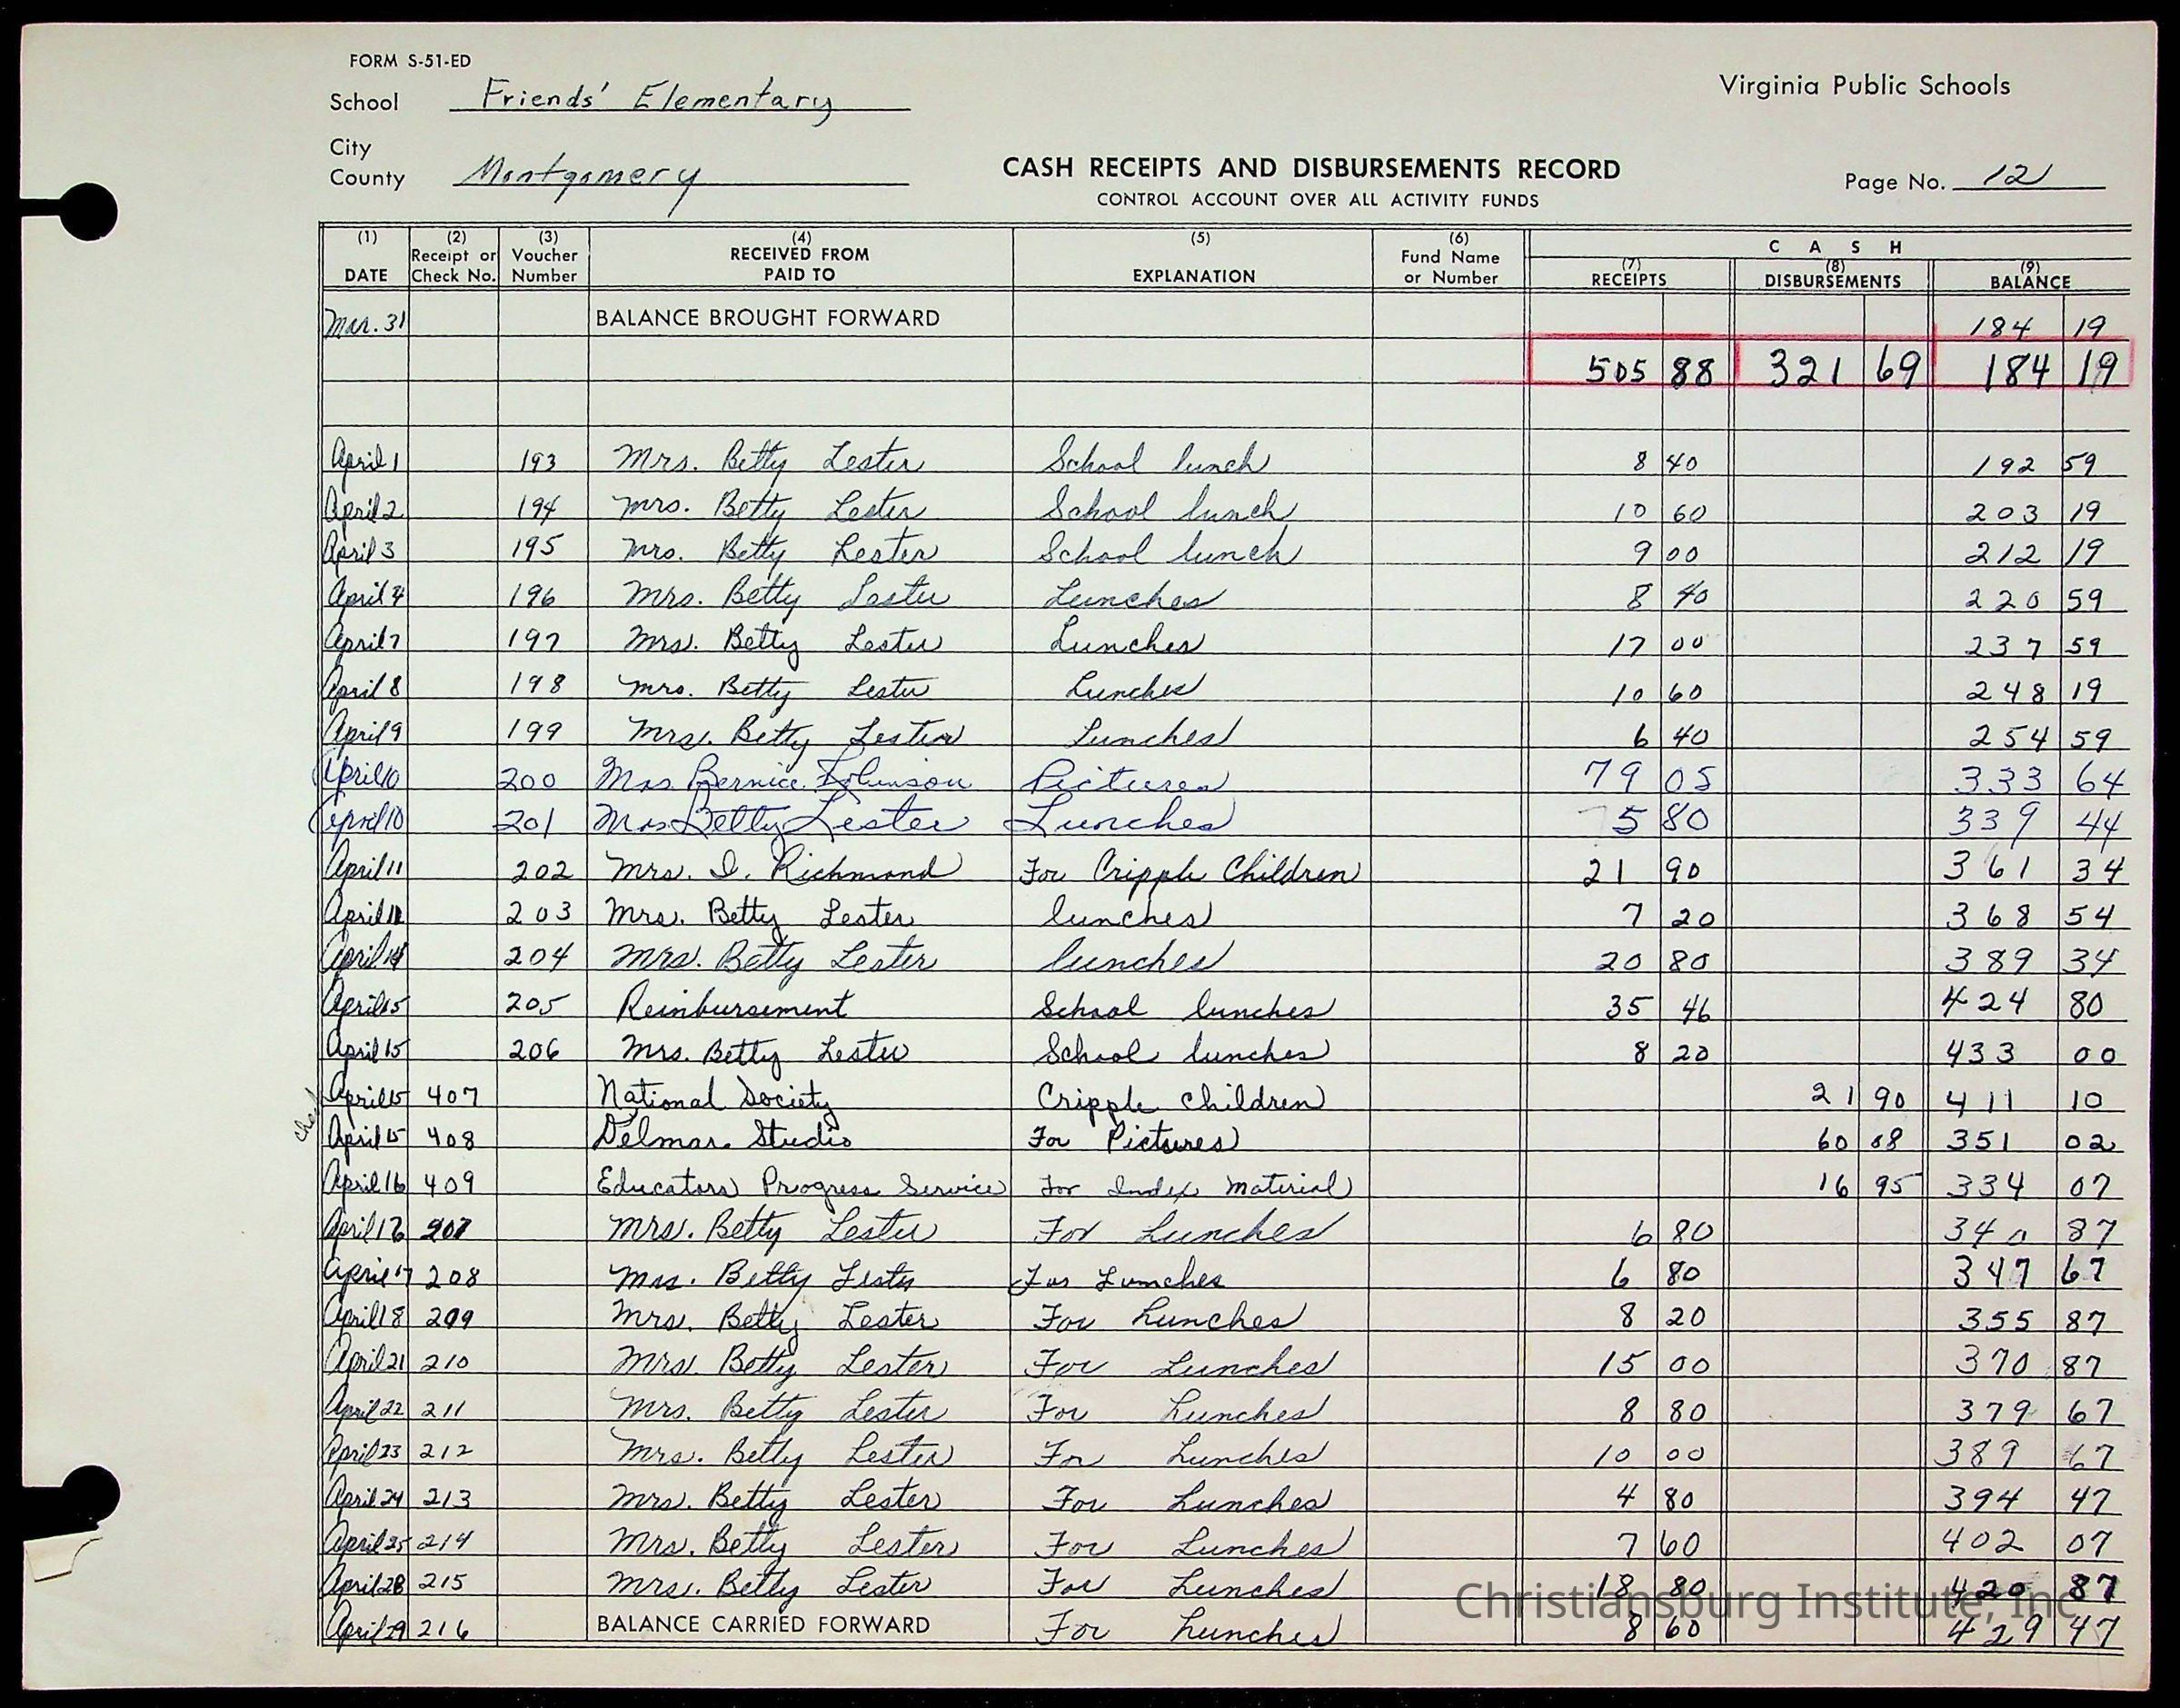 FORM S-51-ED
School Friends' Elementary
Virginia Public Schools
City
County Montgomery
CASH RECEIPTS AND DISBURSEMENTS RECORD
Page No. 12
CONTROL ACCOUNT OVER ALL ACTIVITY FUNDS
(1) DATE (2) Receipt or Check No. (3) Voucher Number (4) RECEIVED FROM PAID TO (5) EXPLANATION (6) Fund Name or Number CASH (7) RECEIPTS (8) DISBURSEMENTS (9) BALANCE
Mar. 31 BALANCE BROUGHT FORWARD 184 19
505 88 321 69 184 19
April 1 193 Mrs. Betty Lester School lunch 8 40 192 59
April 2 194 Mrs. Betty Lester School lunch 10 60 203 19
April 3 195 Mrs. Betty Lester School lunch 9 00 212 19
April 4 196 Mrs. Betty Lester Lunches 8 40 220 59
April 7 197 Mrs. Betty Lester Lunches 17 00 237 59
April 8 198 Mrs. Betty Lester Lunches 10 60 248 19
April 9 199 Mrs. Betty Lester Lunches 6 40 254 59
April 10 200 Mrs. Bernice Johnson Pictures 79 05 333 64
April 10 201 Mrs Betty Lester Lunches 5 80 339 44
April 11 202 Mrs. I. Richmond For Cripple Children 21 90 361 34
April 11 203 Mrs. Betty Lester lunches 7 20 368 54
April 14 204 Mrs. Betty Lester lunches 20 80 389 34
April 15 205 Reinbursement School lunches 35 46 424 80
April 15 206 Mrs. Betty Lester School lunches 8 20 433 00
April 15 407 National Society Cripple Children 21 90 411 10
April 15 408 Delmar Studio For Pictures 60 08 351 02
April 16 409 Educators Progress Service For Index Material 16 95 334 07
April 16 207 Mrs. Betty Lester For Lunches 6 80 340 87
April 17 208 Mrs. Betty Lester For Lunches 6 80 347 67
April 18 209 Mrs. Betty Lester For Lunches 8 20 355 87
April 21 210 Mrs. Betty Lester For Lunches 15 00 370 87
April 22 211 Mrs. Betty Lester For Lunches 8 80 379 67
April 23 212 Mrs. Betty Lester For Lunches 10 00 389 67
April 24 213 Mrs. Betty Lester For Lunches 4 80 394 47
April 25 214 Mrs. Betty Lester For Lunches 7 60 402 07
April 28 215 Mrs. Betty Lester For Lunches 18 80 420 87
Christiansburg Institute, Inc
April 29 216 BALANCE CARRIED FORWARD For Lunches 8 60 429 47